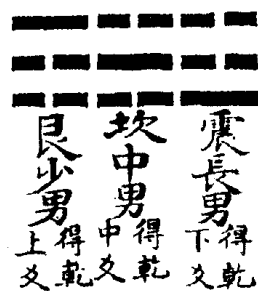 震長男
得乾
下爻
坎中男
得乾
中爻
艮少男
得乾
上爻